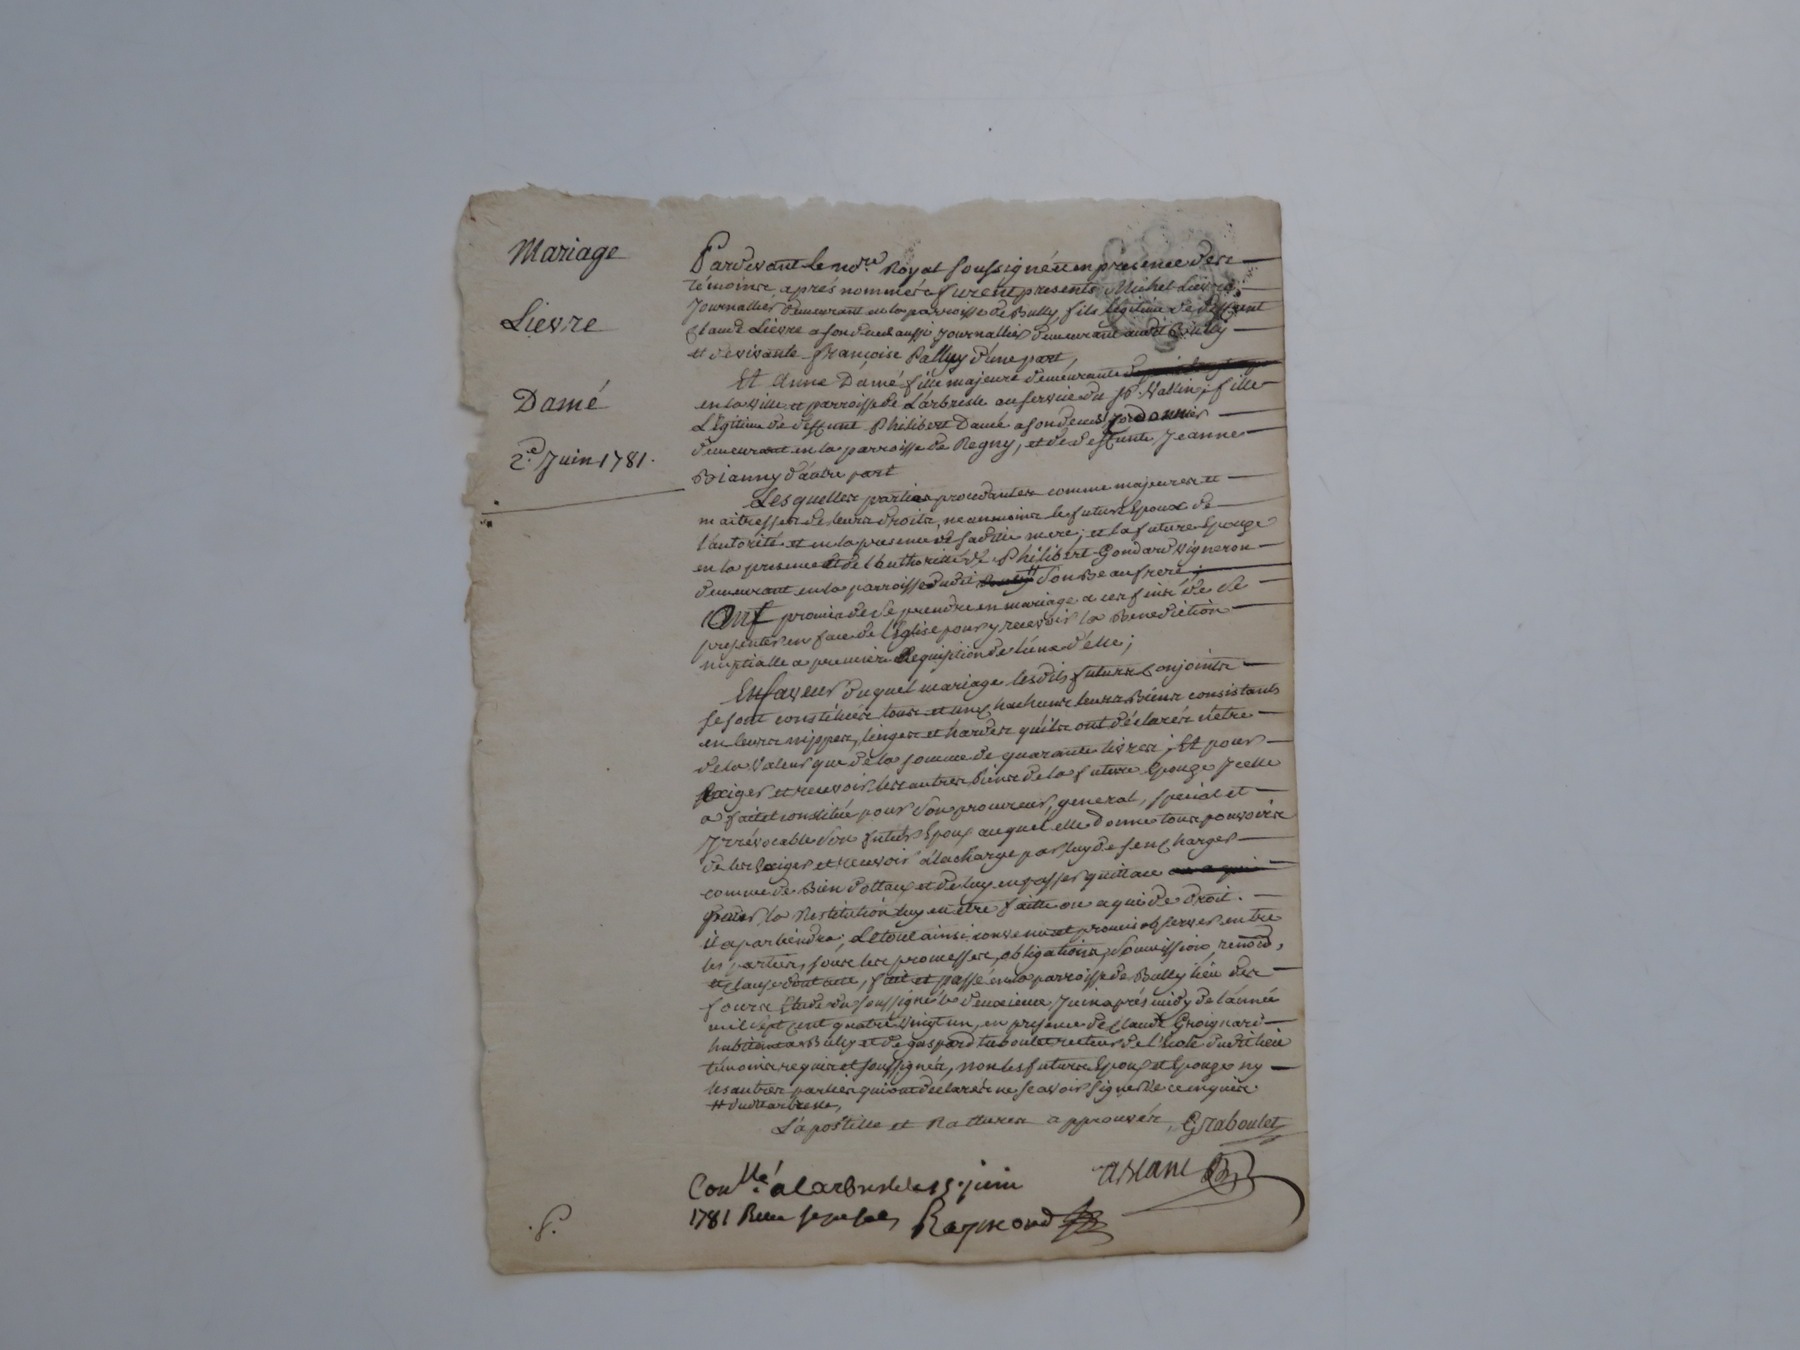 Mariage
Lievre
Damé
2.e Juin 1781.
Pardevant le no.re Royal soussigné et en presence des
témoins aprés nommés furent presents Michel Lievre,
Journallier demeurant en la parroisse de Bully, fils légitime de deffunt
Claude Lièvre a son deceds aussi journallier demeurant audit Bully
et de vivante françoise Palluy d'une part,
Et Anne Damé fille majeure demeurante
en la ville et parroisse de L'arbresle au service du sr Vallin, fille
Légitime de deffunt Philibert Damé a son deceds Cordonnier
demeurant en la parroisse de Regny, et de deffunte Jeanne
d'autre part
Lesquelles parties procedantes comme majeures et
maitresses de leurs droits, neanmoins le futur Epoux de
l'autorité et en la presence de sadite mere, et la future Epouze
en la presence et de l'authorité de Philibert Gondard Vigneron
demeurant en la parroisse dudit # son Beaufrere
Ont promis de se prendre en mariage a ces fins de se
presenter en face de l'Eglise pour y recevoir la Benediction
nuptialle a premiere Requisition de l'un d'elle;
En faveur duquel mariage lesdits futurs conjoints
se sont constitués tous et un chacuns leurs Biens consistants
en leurs nippes, linges et hardes qu'ils ont déclarés n'etre
de la Valeur que de la somme de quarante livres; Et pour
Exiger et recevoir les autres Biens de la future Epouze Icelle
a fait et constitué pour son procureur, general, special et
Irrévocable son futur Epoux auquel elle donne tous pouvoirs
de les Exiger et recevoir a la charge par luy de s'en charger
comme de Bien dottaux et de luy en passer quittance
pour la Restitution luy en être faitte ou a qui de droit.
il apartiendra; Le tout ainsi convenu et promis observer entre
les parties, sous les promesses, obligations, soumissions, renond,
et clauses dont acte, fait et passé en la parroisse de Bully lieu des
fours Etude du soussigné le deuxieme Juin aprés midy de l'année
mil sept cent quatre vingt un, en presence de Claude Groignard
habitant a Bully et de gaspard taboulet recteur de l'Ecole dudit lieu
témoins requis et soussignés, non les futurs Epoux et Epouze ny
les autres parties qui ont declarés ne scavoir signer de ce enquis
# dudit arbresle,
L'apostille et Ratures approuvés, Graboulet
Con.llé a Larbresle le 15. juin
1781 Raymond